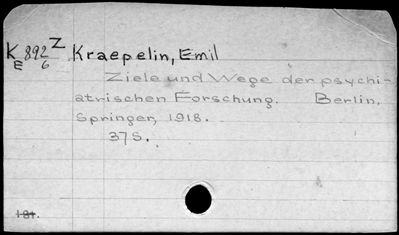 K 892 Z Kraepelin, Emil
E 6
Ziele und Wege der psychi-
atrischen Forschung. Berlin,
Springer, 1918.
37 S.